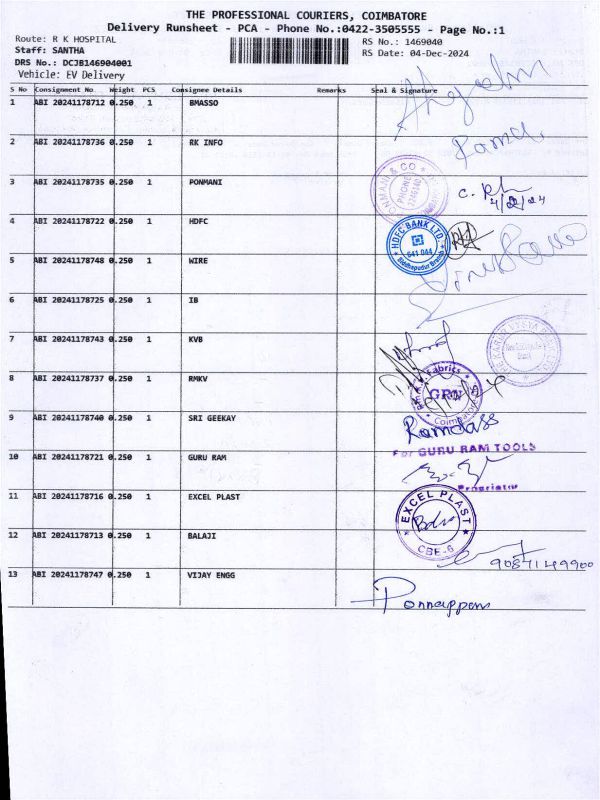 THE PROFESSIONAL COURIERS, COIMBATORE
Delivery Runsheet - PCA - Phone No.:0422-3505555 - Page No.:1
Route: R K HOSPITAL
RS No.: 1469040
Staff: SANTHA
RS Date: 04-Dec-2024
DRS No.: DCJB146904001
Vehicle: EV Delivery
S No Consignment No Weight PCS Consignee Details Remarks Seal & Signature
1 ABI 20241178712 0.250 1 BMASSO
2 ABI 20241178736 0.250 1 RK INFO
3 ABI 20241178735 0.250 1 PONMANI
PONMANI & CO
PHONE
4 ABI 20241178722 0.250 1 HDFC
HDFC BANK LTD.
641 044
5 ABI 20241178748 0.250 1 WIRE
6 ABI 20241178725 0.250 1 IB
7 ABI 20241178743 0.250 1 KVB
8 ABI 20241178737 0.250 1 RMKV
Fabrics
GRN
Coimbatore
9 ABI 20241178740 0.250 1 SRI GEEKAY
Ramdass
For GURU RAM TOOLS
10 ABI 20241178721 0.250 1 GURU RAM
Proprietor
11 ABI 20241178716 0.250 1 EXCEL PLAST
EXCEL PLAST
CBE-6
12 ABI 20241178713 0.250 1 BALAJI
9087149900
13 ABI 20241178747 0.250 1 VIJAY ENGG
Ponnappan